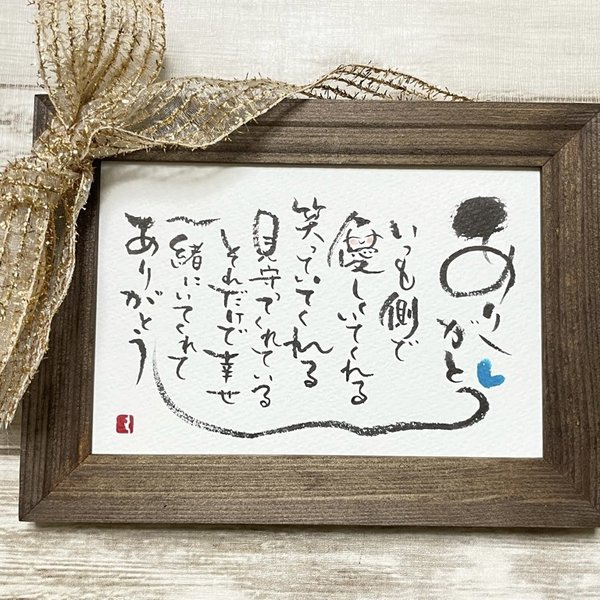 ありがとう
いつも側で
優しくいてくれる
笑っていてくれる
見守ってくれている
それだけで幸せ
一緒にいてくれて
ありがとう